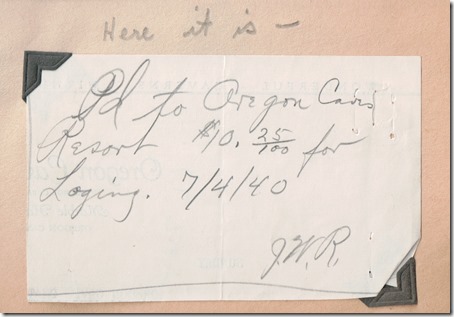 Here it is —
Pd to Oregon Caves
Resort $10. 25/100 for
Loging. 7/4/40
J.W.R.